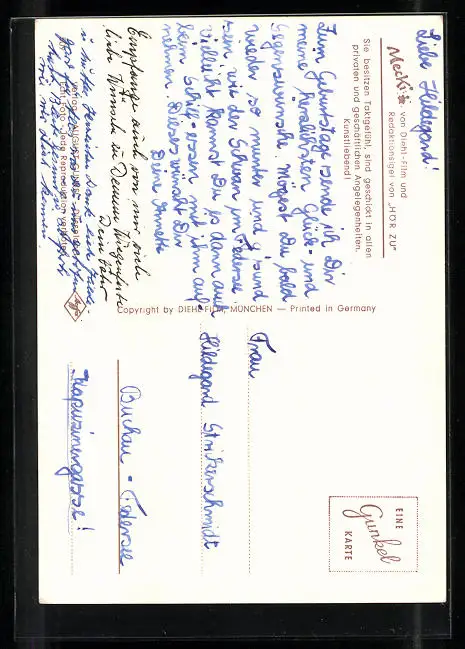 Liebe Hildegard!
Mecki von Diehl-Film und
Redaktionsigel von „HÖR ZU"
Sie besitzen Taktgefühl, sind geschickt in allen
privaten und geschäftlichen Angelegenheiten.
Kunstliebend!
Zum Geburtstage sende ich Dir
meine herzlichsten Glück- und
Segenswünsche. Mögest Du bald
wieder so munter und g'sund
sein wie der Schwan im Federsee.
Vielleicht kannst Du ja dann auch
beim Schilf-essen mit ihm auf-
nehmen. Dieses wünscht Dir
Deine Annette
Empfange auch von mir recht
liebe Wünsche zu Deinem Wiegenfeste
Dein
Verlag AUGUST GUNKEL, Düsseldorf
Echt Foto - Jede Reproduktion verboten
Copyright by DIEHL-FILM, MÜNCHEN — Printed in Germany
EINE
Gunkel
KARTE
Frau
Hildegard Strikerschmidt
Buchau - Federsee
Kapuzinergasse!